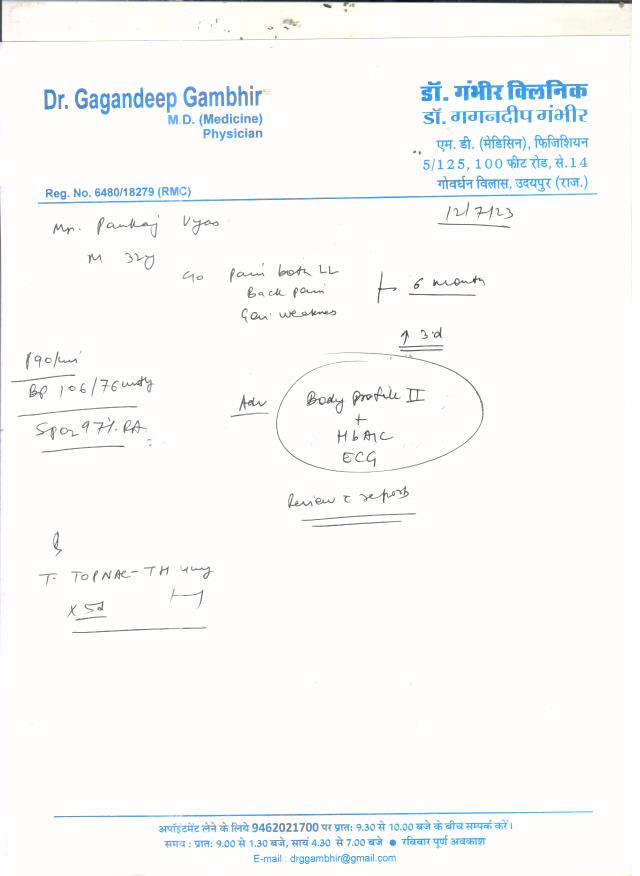 Dr. Gagandeep Gambhir
M.D. (Medicine)
Physician
Reg. No. 6480/18279 (RMC)
डॉ. गंभीर क्लिनिक
डॉ. गगनदीप गंभीर
एम. डी. (मेडिसिन), फिजिशियन
5/125, 100 फीट रोड, से.14
गोवर्धन विलास, उदयपुर (राज.)
12/7/23
Mr. Pankaj Vyas
M 32y
C/o Pain both LL
Back pain
Gen. weakness
6 month
↑ 3d
P90/min
BP 106/76
SpO2 97% RA
Adv
Body profile II
+
HbA1C
ECG
Review c reports
T. TOPNAC-TH 4mg
x 5d
अपॉइंटमेंट लेने के लिये 9462021700 पर प्रातः 9.30 से 10.00 बजे के बीच सम्पर्क करें।
समय : प्रातः 9.00 से 1.30 बजे, सायं 4.30 से 7.00 बजे ● रविवार पूर्ण अवकाश
E-mail : drggambhir@gmail.com